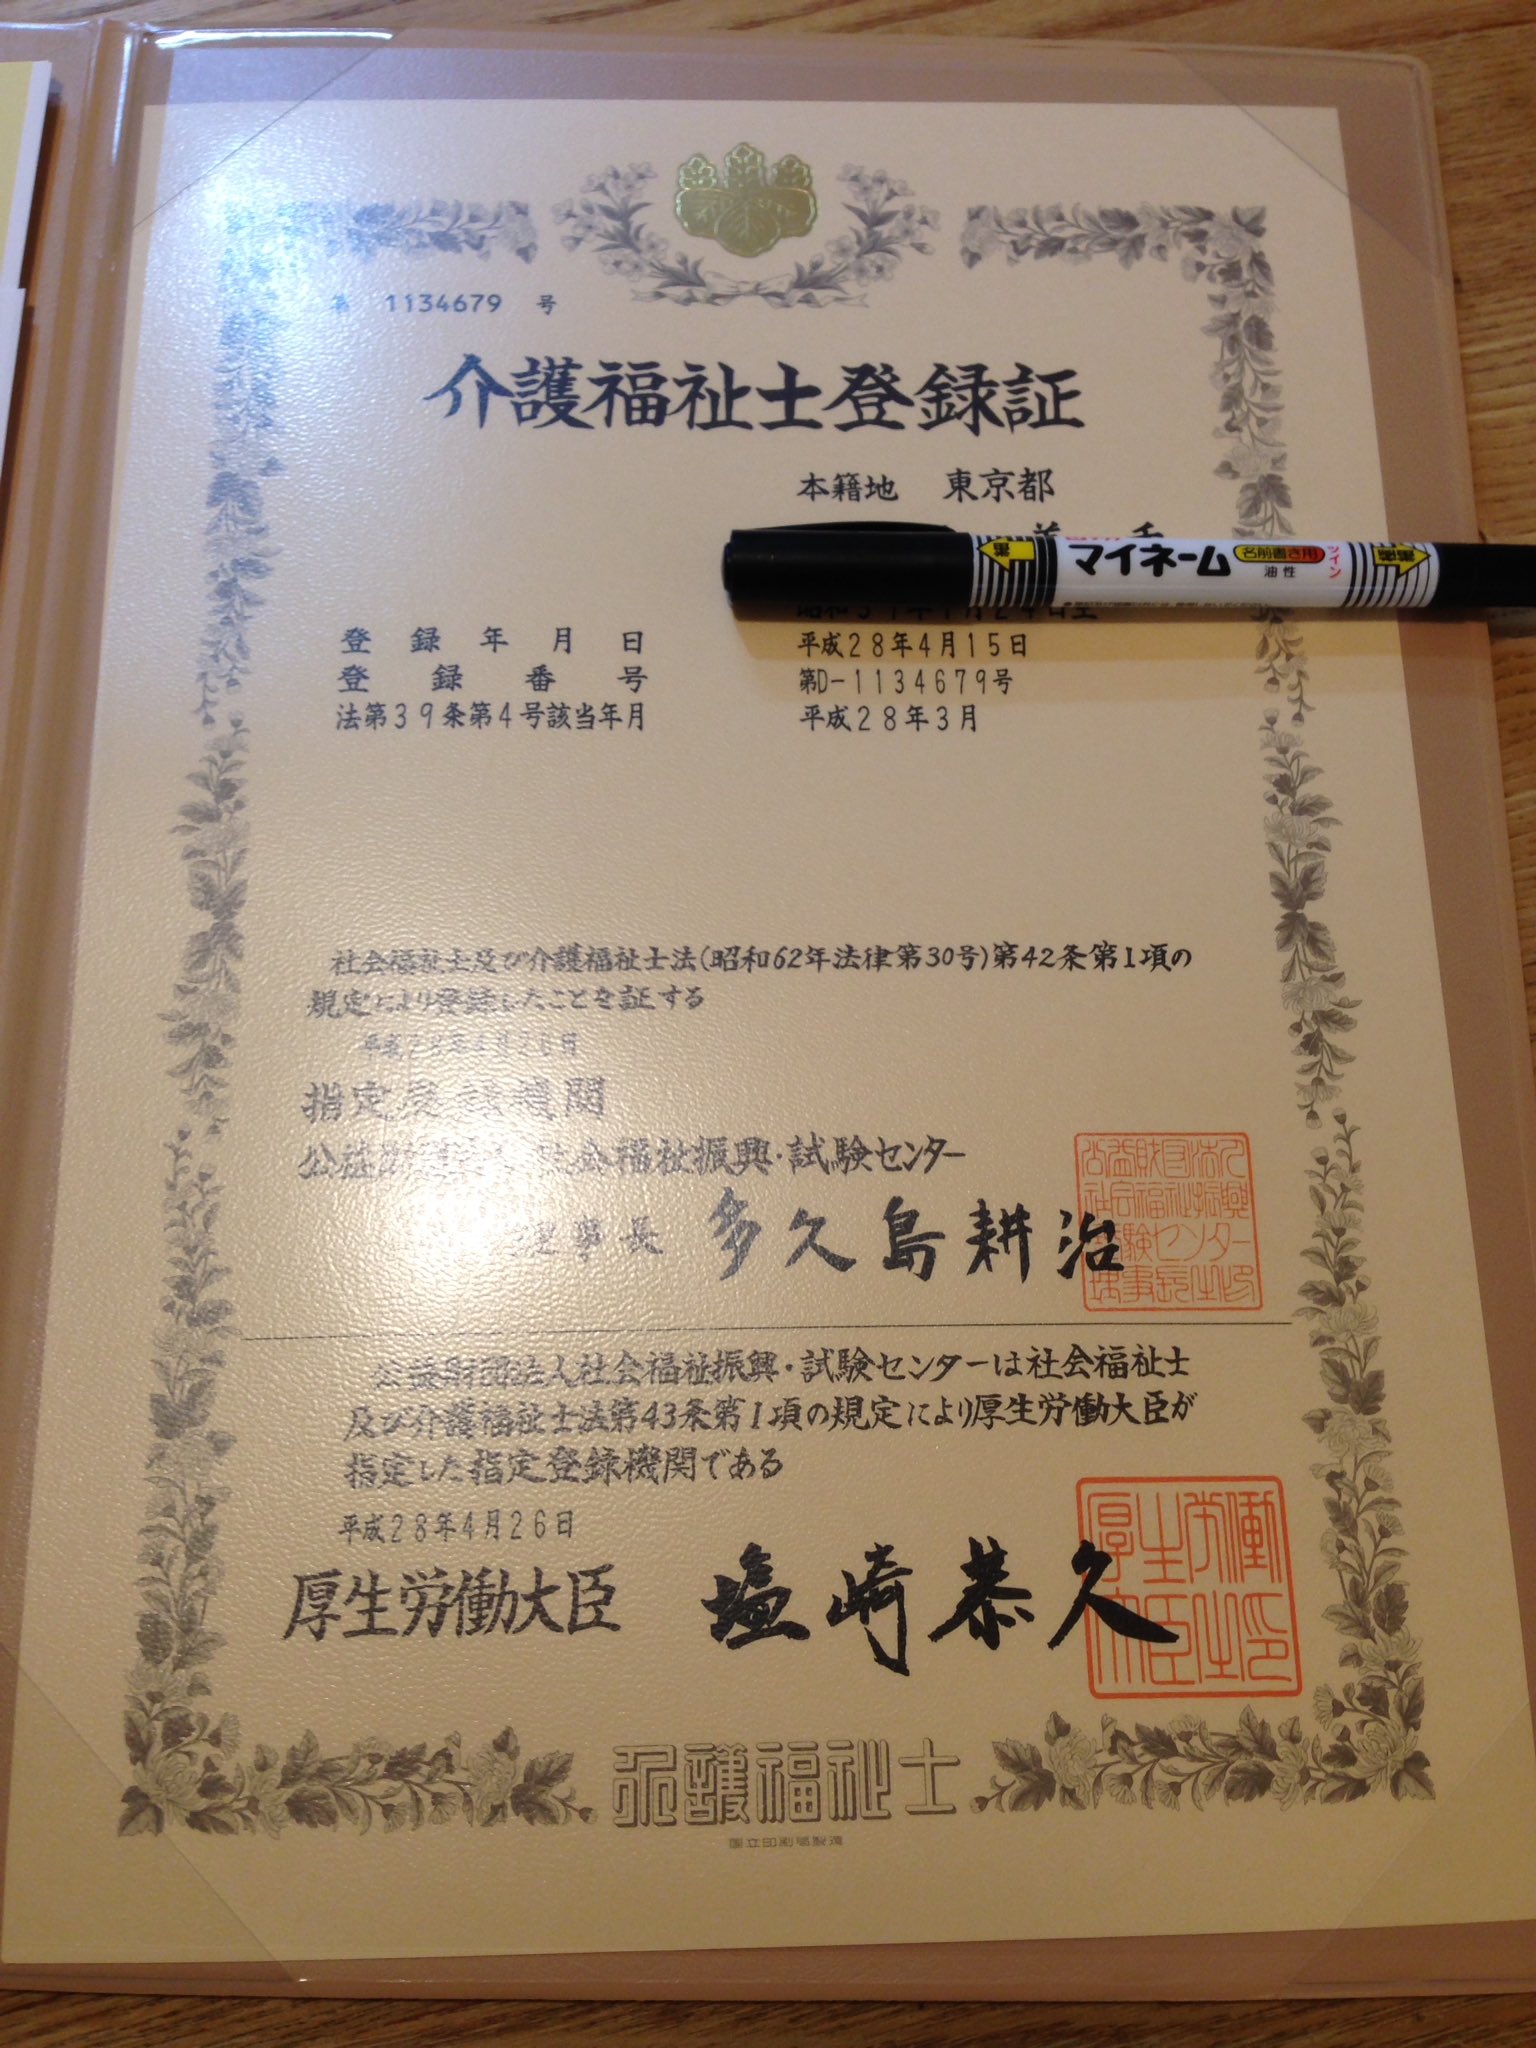 第 1134679 号
介護福祉士登録証
本籍地 東京都
マイネーム
名前書き用
油性
ツイン
登録年月日 平成28年4月15日
登録番号 第D-1134679号
法第39条第4号該当年月 平成28年3月
社会福祉士及び介護福祉士法(昭和62年法律第30号)第42条第1項の
規定により登録したことを証する
平成28年4月26日
指定登録機関
公益財団法人社会福祉振興・試験センター
理事長 多久島耕治
公益財団法人社会福祉振興・試験センターは社会福祉士
及び介護福祉士法第43条第1項の規定により厚生労働大臣が
指定した指定登録機関である
平成28年4月26日
厚生労働大臣 塩崎恭久
介護福祉士
国立印刷局製造